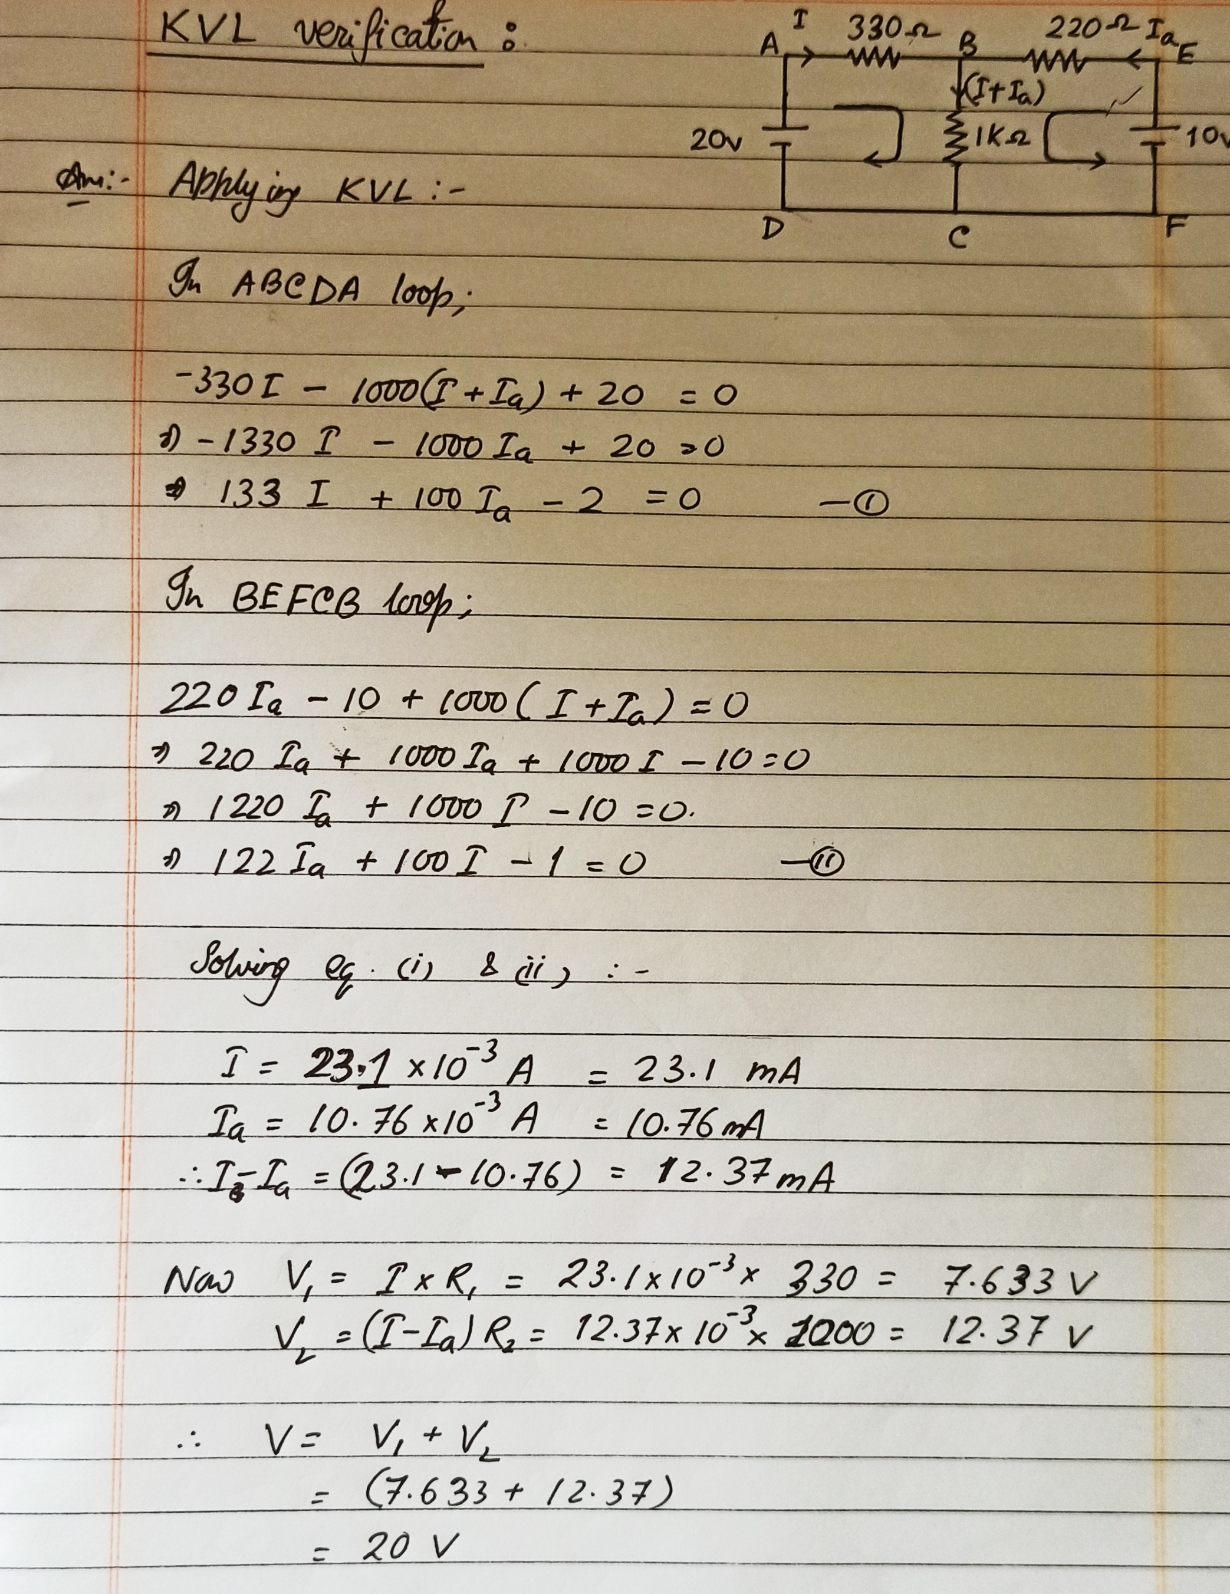 KVL verification :
I 330Ω B 220Ω Ia E
A
(I+Ia)
20v 1KΩ 10v
D C F
Ans:- Applying KVL :-
In ABCDA loop;
-330 I - 1000(I + Ia) + 20 = 0
⇒ -1330 I - 1000 Ia + 20 = 0
⇒ 133 I + 100 Ia - 2 = 0 —(i)
In BEFCB loop;
220 Ia - 10 + 1000 ( I + Ia ) = 0
⇒ 220 Ia + 1000 Ia + 1000 I - 10 = 0
⇒ 1220 Ia + 1000 I - 10 = 0.
⇒ 122 Ia + 100 I - 1 = 0 —(ii)
Solving eq. (i) & (ii) :-
I = 23.1 ×10⁻³ A = 23.1 mA
Ia = 10.76 ×10⁻³ A = 10.76 mA
∴ I - Ia = (23.1 - 10.76) = 12.37 mA
Now V₁ = I × R₁ = 23.1×10⁻³ × 330 = 7.633 V
V₂ = (I - Ia) R₂ = 12.37× 10⁻³ × 1000 = 12.37 V
∴ V = V₁ + V₂
= (7.633 + 12.37)
= 20 V